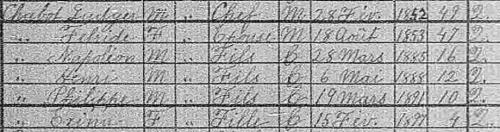 Chabot Ludger M " Chef M 28 Fév. 1852 49 2
" Felside F " Epouse M 18 Août 1853 47 2
" Napoléon M " Fils C 28 Mars 1885 16 2
" Henri M " Fils C 6 Mai 1888 12 2
" Philippe M " Fils C 19 Mars 1891 10 2
" Exina F " Fille C 15 Fév. 1897 4 2